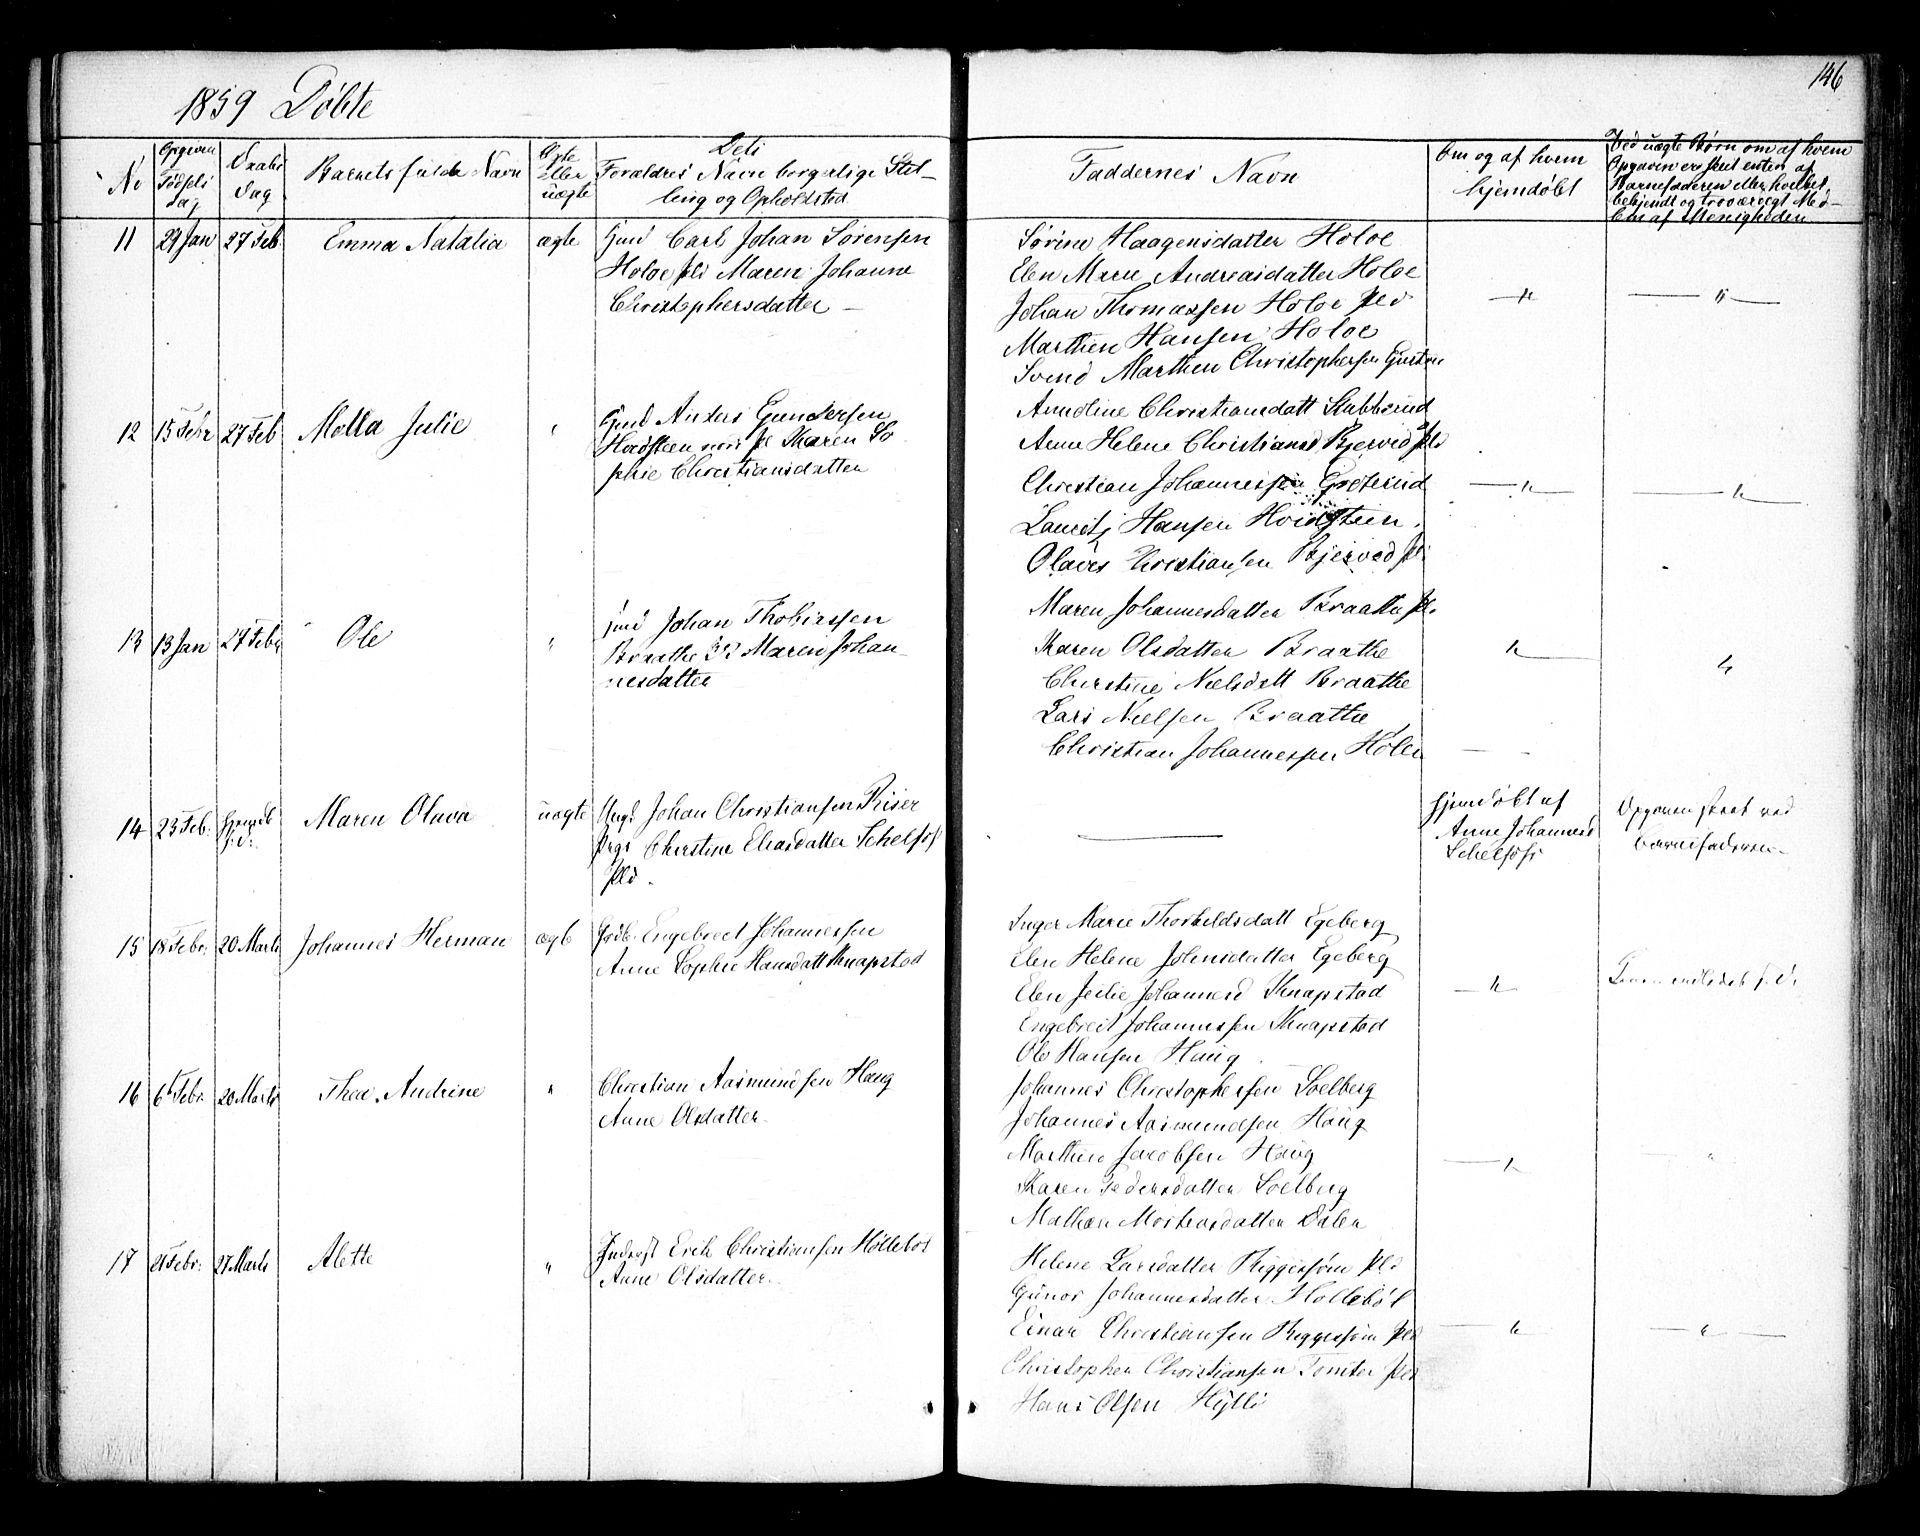 146
1859 Döbte
No
Opgiven Födsels Dag
Daabs Dag
Barnets fulde Navn
Ægte eller uægte
Dets Forældres Navn borgerlige Stilling og Opholdsted
Faddernes Navn
Om og af hvem hjemdøbt
Ved uægte Børn om af hvem
Opgaven er skeet enten af
Barnefaderen eller hvilket
bekjendt og troværdigt Med-
lem af Menigheden
11 29 Jan 27 Feb Emma Natalia ægte Gmd Carl Johan Sörensen
Holoe Pld Maren Johanne
Christophersdatter —
Sörine Haagensdatter Holoe
Elen Marie Andreasdatter Holoe
Johan Thomassen Holoe Pld
Marthin Hansen Holoe
Svend Marthin Christophersen
12 15 Febr 27 Feb Molla Julie " Gmd Anders Gundersen
Hvidsteen Karen So
phie Christiansdatter
Anndine Christiansdatt Stubberud
Anne Helene Christiansd Bjerved Pld
Christian Johannessen Groterud
Lauritz Hansen Hvidsteen
Olaves Christiansen Bjerved Pl
13 13 Jan 27 Febr Ole " Gmd Johan Thobiassen
Braathe Maren Johan-
nesdatter
Maren Johannesdatter Braathe Pl.
Karen Olsdatter Braathe
Christine Nielsdatt Braathe
Lars Nielsen Braathe
Christian Johannessen Holen
14 23 Feb: Hjemdb s.d. Maren Olava uægte Ungk Johan Christiansen Riser
Pige Christine Eliasdatter Schelfos
Pld.
hjemdøbt af
Anne Johannesd
Schelfoss
Opgaven skeet ved
barnefaderen
15 18 Febr: 20 Marts Johannes Herman ægte Engebret Johannessen
Anne Sophie Hansdatt Knapstad
Inger Marie Thorkildsdatt Egeberg
Elen Helene Johnsdatter Egeberg
Elen Jeilie Johannesd Knapstad
Engebret Johannessen Knapstad
Ole Hansen Haug
16 6 Febr. 20 Marts Thea Andrine " Christian Aasmundsen Haug
Anne Olsdatter
Johannes Christophersen Soelberg
Johannes Aasmundsen Haug
Marthin Jacobsen Haug
Karen Pedersdatter Soelberg
Mathea Mortensdatter Dalen
17 21 Febr: 27 Marts Alette " Indregt Erik Christiansen Höllebøl
Anne Olsdatter
Helene Larsdatter Riggessöm Pld
Gunor Johannesdatter Hollebøl
Einar Christiansen Riggessöm Pld
Christopher Christiansen Tomter Pld
Hans Olsen Hylli